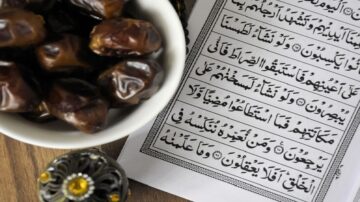 اَيْدِيْهِمْ وَتَشْهَدُ اَرْجُلُهُمْ
يَكْسِبُوْنَ ۝ وَلَوْ نَشَآءُ لَطَمَسْنَا
عَلٰٓى اَعْيُنِهِمْ فَاسْتَبَقُوا الصِّرَاطَ فَاَنّٰى
يُبْصِرُوْنَ ۝ وَلَوْ نَشَآءُ لَمَسَخْنٰهُمْ عَلٰى
مَكَانَتِهِمْ فَمَا اسْتَطَاعُوْا مُضِيًّا وَّلَا
يَرْجِعُوْنَ ۝ وَمَنْ نُّعَمِّرْهُ نُنَكِّسْهُ فِى
الْخَلْقِ اَفَلَا يَعْقِلُوْنَ ۝ وَمَا عَلَّمْنٰهُ